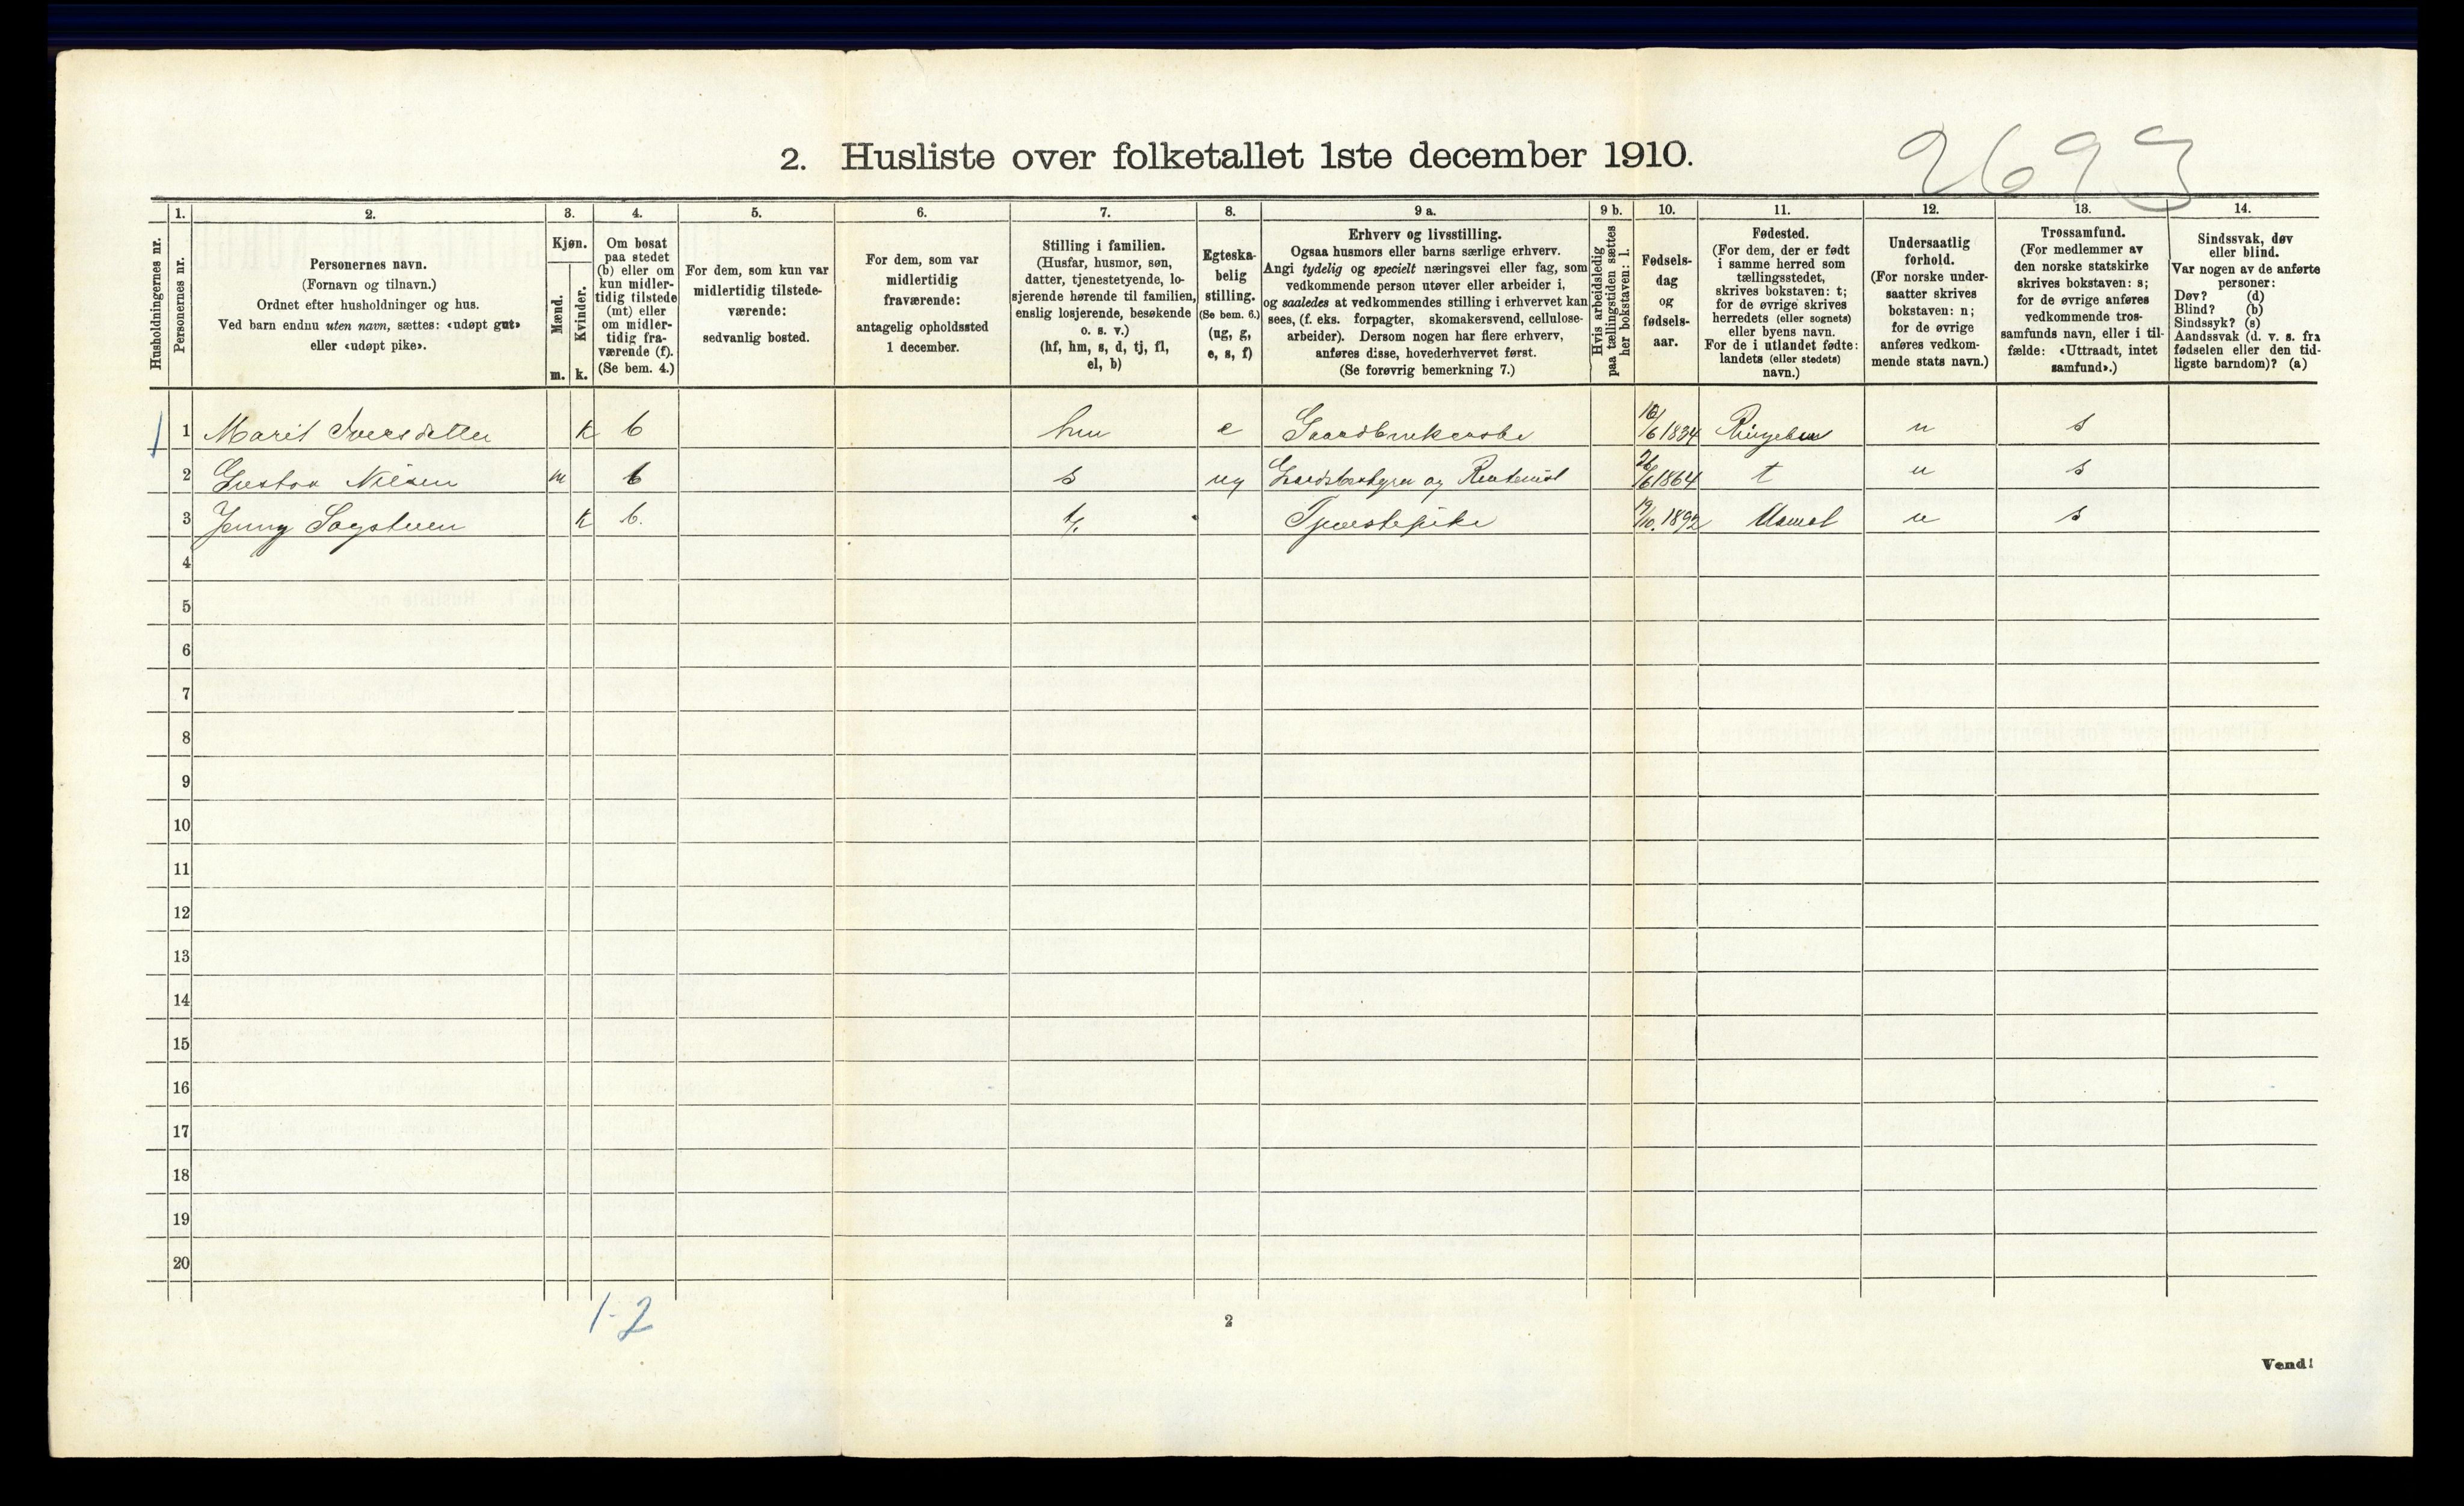 2. Husliste over folketallet 1ste december 1910.
2693
Husholdningernes nr.
1.
Personernes nr.
2.
Personernes navn.
(Fornavn og tilnavn.)
Ordnet efter husholdninger og hus.
Ved barn endnu uten navn, sættes: «udøpt gut»
eller «udøpt pike».
3.
Kjøn.
Mænd.
Kvinder.
m. k.
4.
Om bosat
paa stedet
(b) eller om
kun midler-
tidig tilstede
(mt) eller
om midler-
tidig fra-
værende (f).
(Se bem. 4.)
5.
For dem, som kun var
midlertidig tilstede-
værende:
sedvanlig bosted.
6.
For dem, som var
midlertidig
fraværende:
antagelig opholdssted
1 december.
7.
Stilling i familien.
(Husfar, husmor, søn,
datter, tjenestetyende, lo-
sjerende hørende til familien,
enslig losjerende, besøkende
o. s. v.)
(hf, hm, s, d, tj, fl,
el, b)
8.
Egteska-
belig
stilling.
(Se bem. 6.)
(ug, g,
e, s, f)
9 a.
Erhverv og livsstilling.
Ogsaa husmors eller barns særlige erhverv.
Angi tydelig og specielt næringsvei eller fag, som
vedkommende person utøver eller arbeider i,
og saaledes at vedkommendes stilling i erhvervet kan
sees, (f. eks. forpagter, skomakersvend, cellulose-
arbeider). Dersom nogen har flere erhverv,
anføres disse, hovederhvervet først.
(Se forøvrig bemerkning 7.)
9 b.
Hvis arbeidsledig
paa tællingstiden sættes
her bokstaven: l.
10.
Fødsels-
dag
og
fødsels-
aar.
11.
Fødested.
(For dem, der er født
i samme herred som
tællingsstedet,
skrives bokstaven: t;
for de øvrige skrives
herredets (eller sognets)
eller byens navn.
For de i utlandet fødte:
landets (eller stedets)
navn.)
12.
Undersaatlig
forhold.
(For norske under-
saatter skrives
bokstaven: n;
for de øvrige
anføres vedkom-
mende stats navn.)
13.
Trossamfund.
(For medlemmer av
den norske statskirke
skrives bokstaven: s;
for de øvrige anføres
vedkommende tros-
samfunds navn, eller i til-
fælde: «Uttraadt, intet
samfund».)
14.
Sindssvak, døv
eller blind.
Var nogen av de anførte
personer:
Døv? (d)
Blind? (b)
Sindssyk? (s)
Aandssvak (d. v. s. fra
fødselen eller den tid-
ligste barndom)? (a)
1 1 Marit Iversdatter k b hm e Gaardbrukerske /6 1834 Ringebu n s
2 Gustav Nilsen m b s ug Gaardsbestyrer og 26/6 1864 t n s
3 Jenny k b. tj. Tjenestepike 19/10. 1892 n s
4
5
6
7
8
9
10
11
12
13
14
15
16
17
18
19
20
1-2
2
Vend!